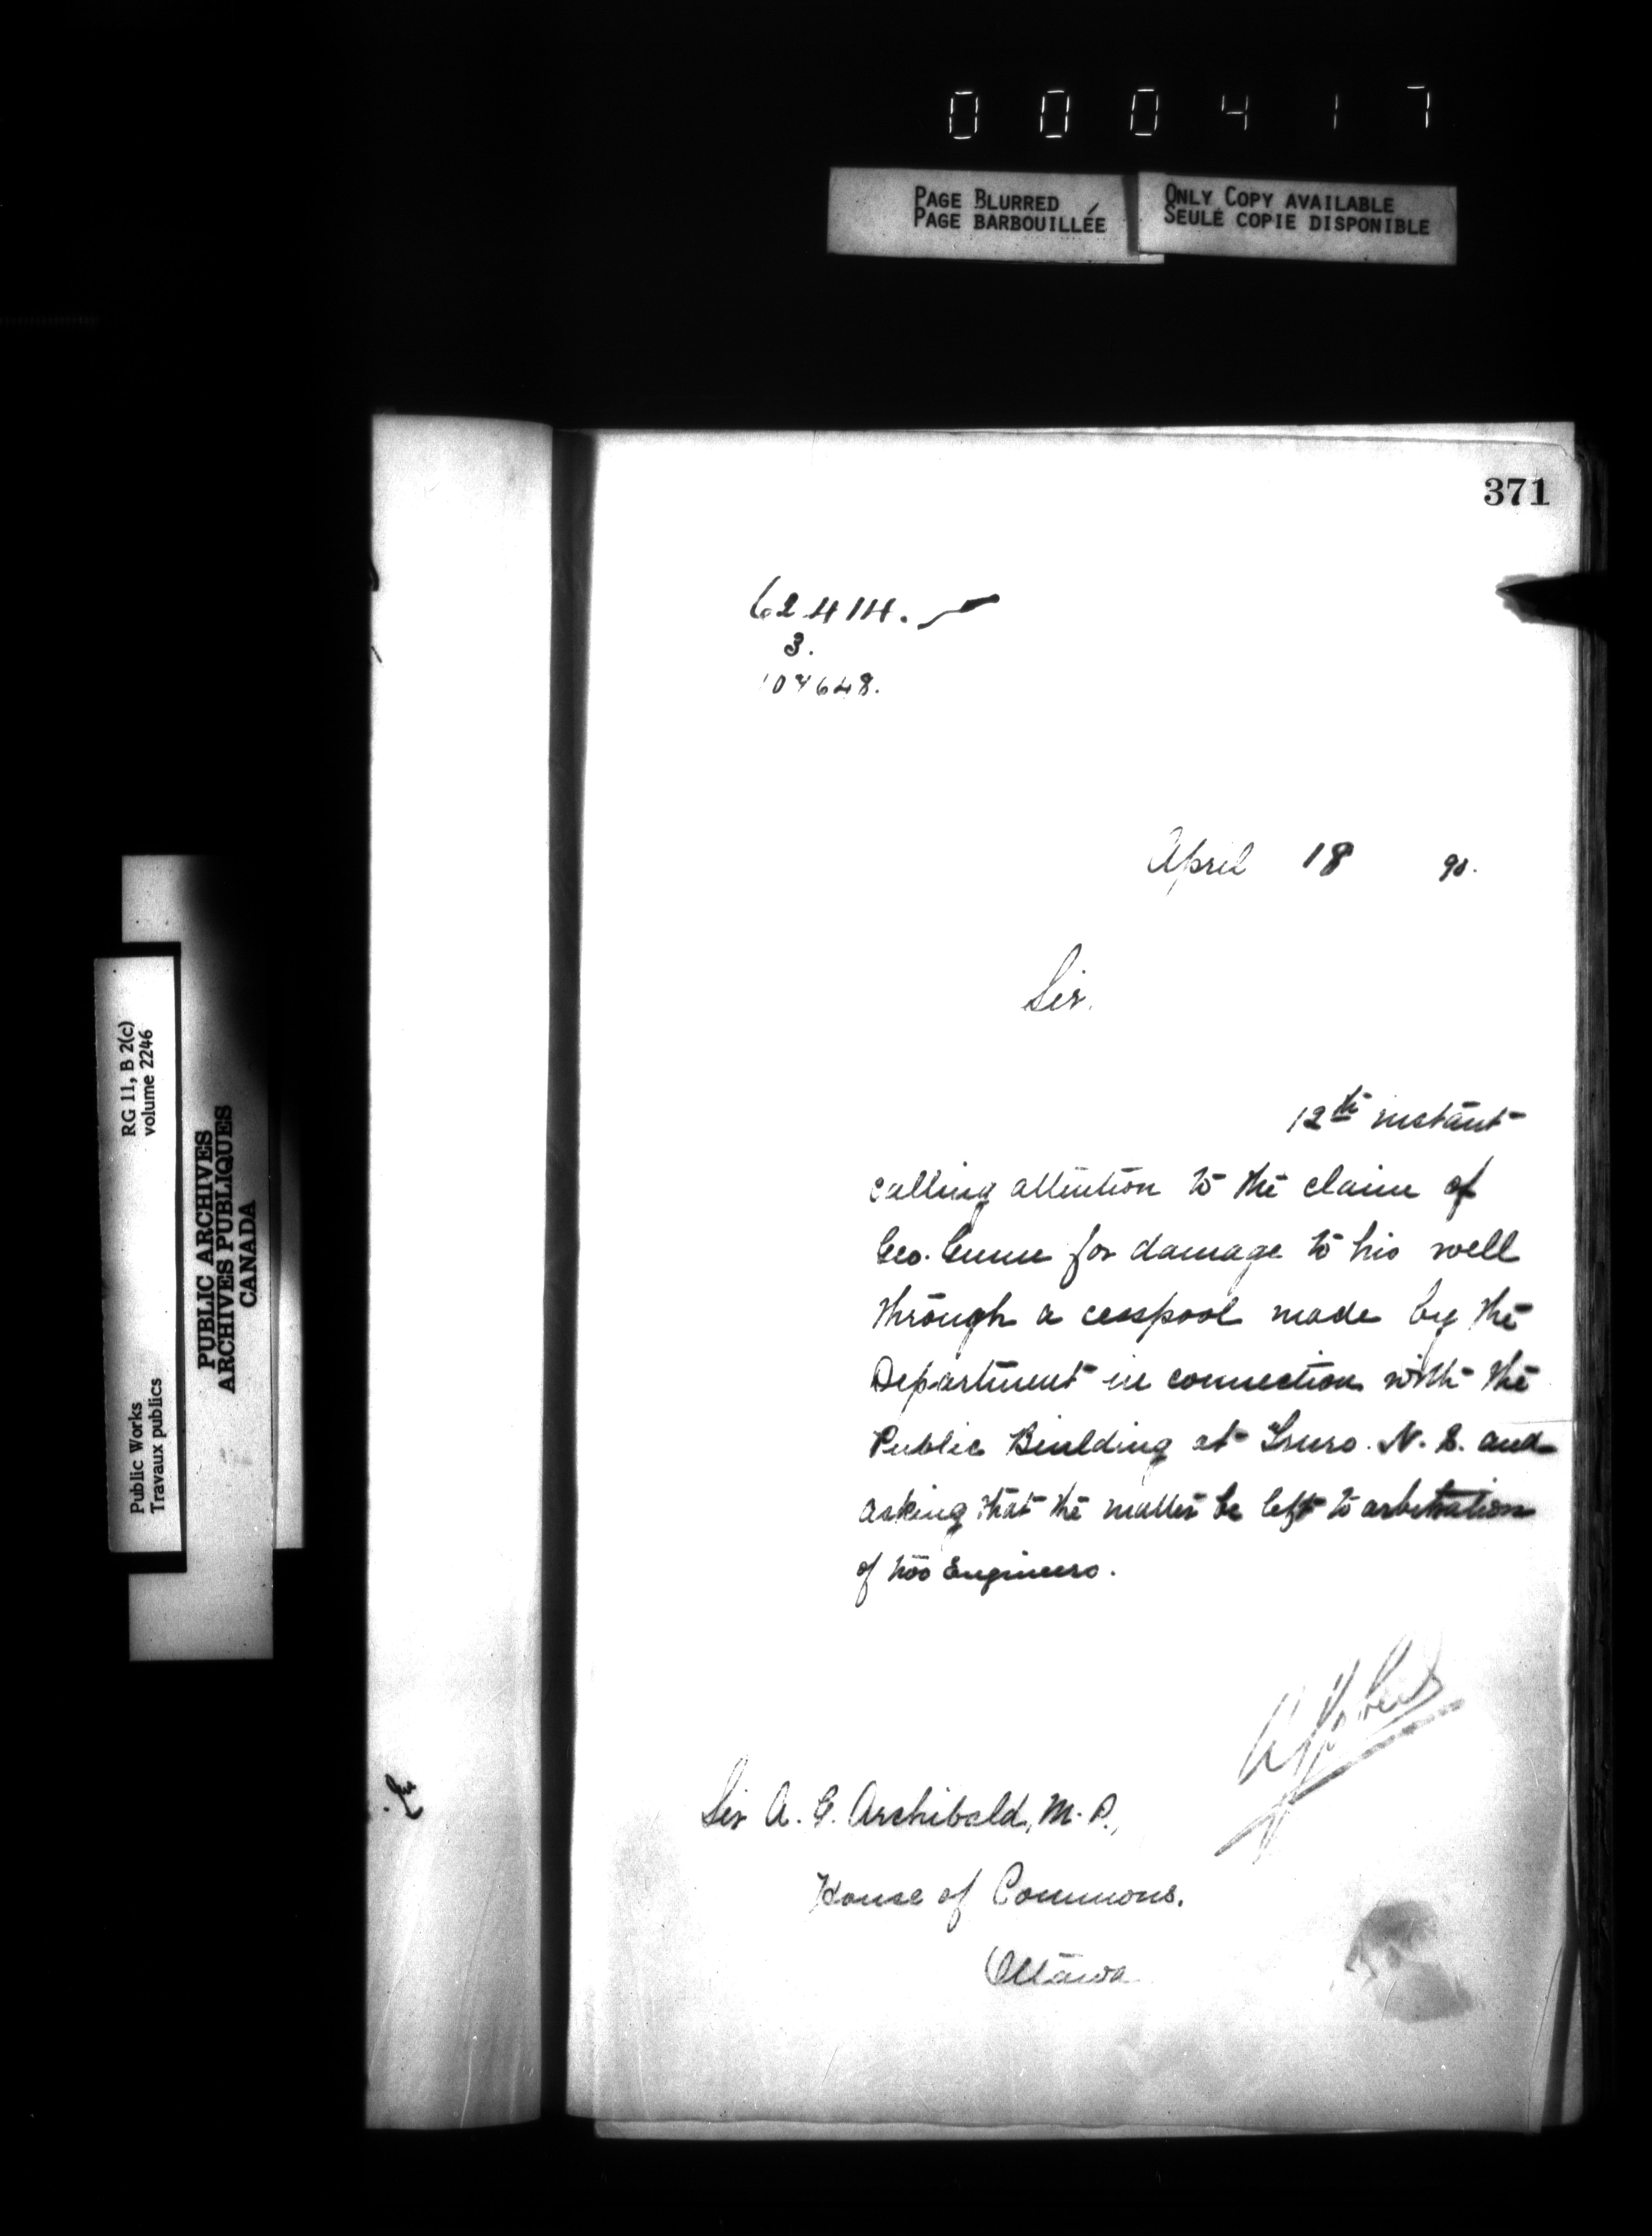 000417
PAGE BLURRED
PAGE BARBOUILLÉE
ONLY COPY AVAILABLE
SEULE COPIE DISPONIBLE
371
62414.
3.
104648.
April 18 90.
Sir.
12th instant
calling attention to the claim of
Geo. Gunn for damage to his well
through a cesspool made by the
Department in connection with the
Public Building at Truro. N. S. and
asking that the matter be left to arbitration
of two Engineers.
Sir A. G. Archibald, M. P.,
House of Commons.
Ottawa
RG 11, B 2(c)
volume 2246
Public Works
Travaux publics
PUBLIC ARCHIVES
ARCHIVES PUBLIQUES
CANADA